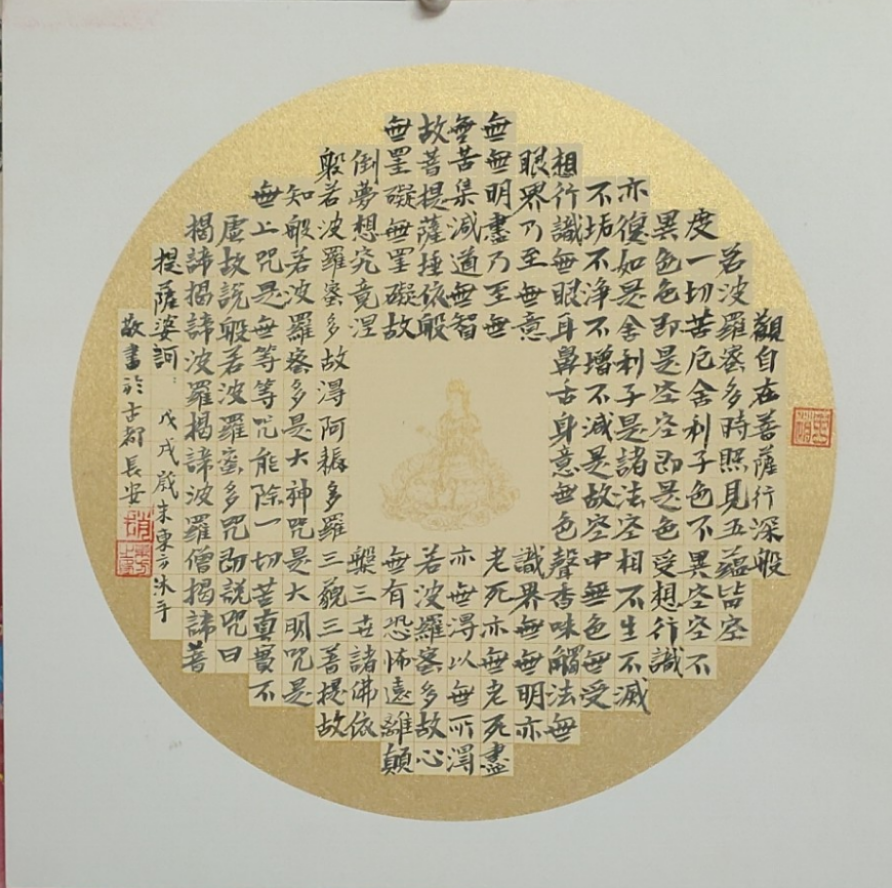 觀自在菩薩行深般
若波羅蜜多時照見五蘊皆空
度一切苦厄舍利子色不異空空不
異色色即是空空即是色受想行識
亦復如是舍利子是諸法空相不生不滅
不垢不淨不增不減是故空中無色無受
想行識無眼耳鼻舌身意無色聲香味觸法無
眼界乃至無意識界無無明亦
無無明盡乃至無老死亦無老死盡
無苦集減道無智亦無得以無所得
故菩提薩埵依般若波羅蜜多故心
無罣礙無罣礙故無有恐怖遠離顛
倒夢想究竟涅槃三世諸佛依
般若波羅蜜多故得阿耨多羅三藐三菩提故
知般若波羅蜜多是大神咒是大明咒是
無上咒是無等等咒能除一切苦真實不
虛故說般若波羅蜜多咒即說咒曰
揭諦揭諦波羅揭諦波羅僧揭諦菩
提薩婆訶：戊戌歲末東方沐手
敬書於古都長安